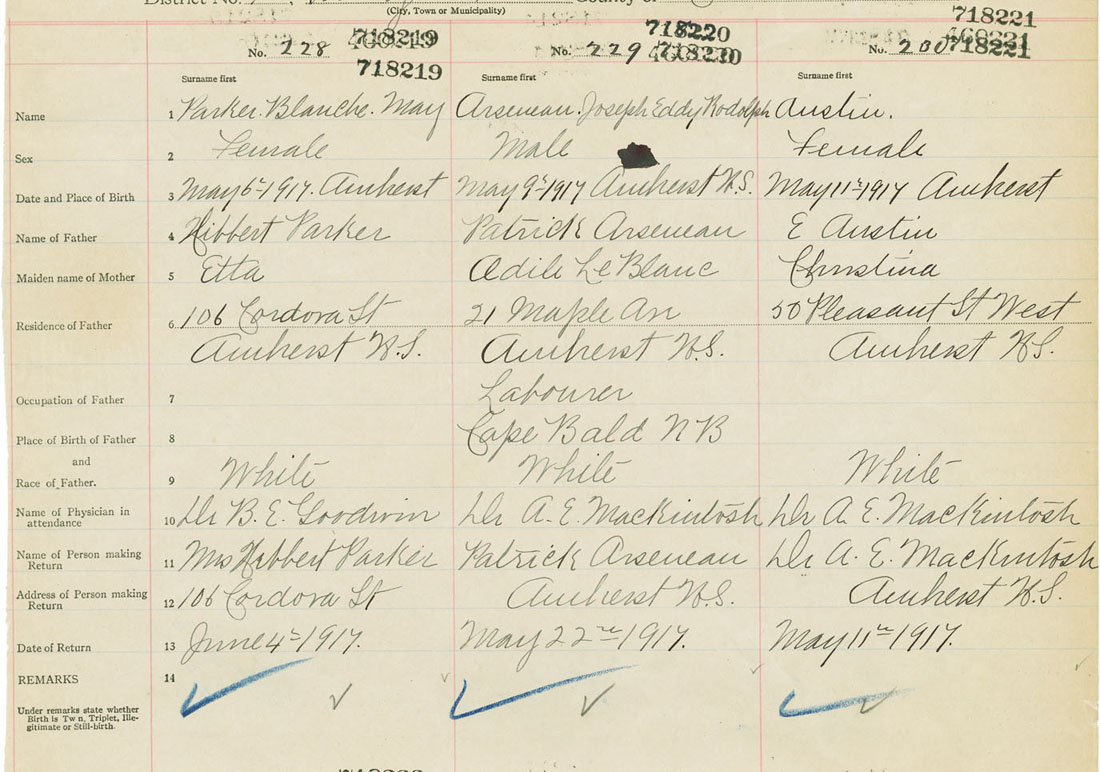 District No. County of
(City, Town or Municipality)
718219 718220 718221
No. 228 460219 No. 229 718220 No. 230 460221
718219 460220 718221
Surname first Surname first Surname first
Name 1 Parker. Blanche. May Arseneau. Joseph Eddy Rodolph Austin.
Sex 2 Female Male Female
Date and Place of Birth 3 May 6th 1917. Amherst May 9th 1917 Amherst N.S. May 11th 1917 Amherst
Name of Father 4 Hibbert Parker Patrick Arseneau E Austin
Maiden name of Mother 5 Etta Odile LeBlanc Christina
Residence of Father 6 106 Cordova St 21 Maple Av 50 Pleasant St West
Amherst N.S. Amherst N.S. Amherst N.S.
Occupation of Father 7 Labourer
Place of Birth of Father 8 Cape Bald NB
and
Race of Father. 9 White White White
Name of Physician in attendance 10 Dr B. E. Goodwin Dr A. E. MacKintosh Dr A. E. MacKintosh
Name of Person making Return 11 Mrs Hibbert Parker Patrick Arseneau Dr A. E. MacKintosh
Address of Person making Return 12 106 Cordova St Amherst N.S. Amherst N.S.
Date of Return 13 June 4th 1917. May 22nd 1917. May 11th 1917.
REMARKS 14
Under remarks state whether
Birth is Tw n, Triplet, Ille-
gitimate or Still-birth.